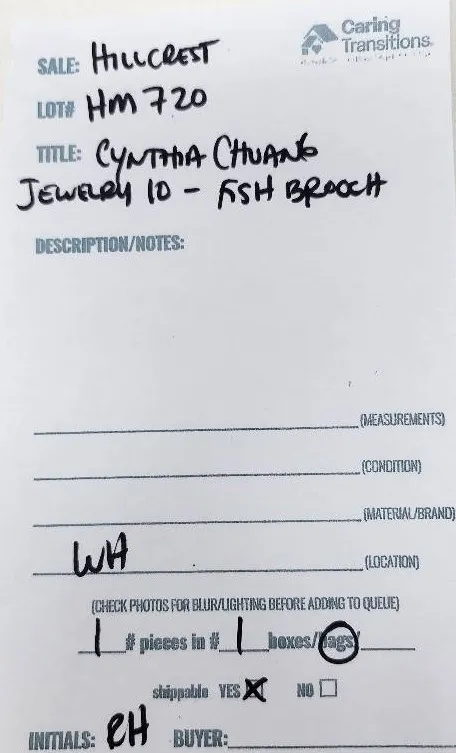 Caring
Transitions
SALE: HILLCREST
LOT# HM 720
TITLE: CYNTHIA CHUANG
JEWELRY 10 - FISH BROOCH
DESCRIPTION/NOTES:
(MEASUREMENTS)
(CONDITION)
(MATERIAL/BRAND)
WH (LOCATION)
(CHECK PHOTOS FOR BLUR/LIGHTING BEFORE ADDING TO QUEUE)
1 # pieces in # 1 boxes/bags/
shippable YES X NO
INITIALS: RH BUYER: